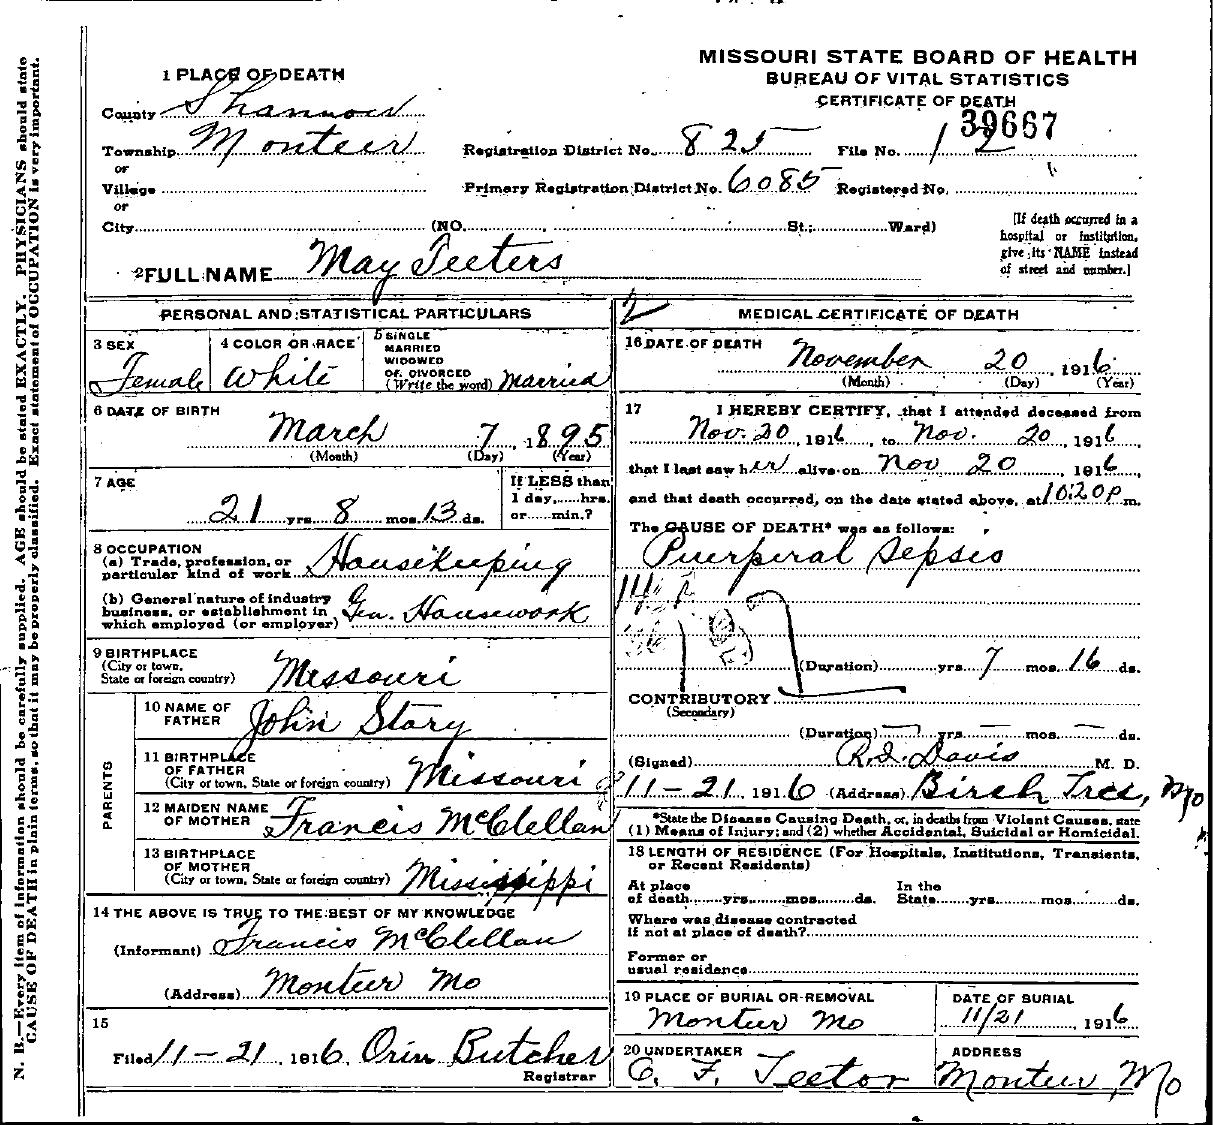 MISSOURI STATE BOARD OF HEALTH
BUREAU OF VITAL STATISTICS
CERTIFICATE OF DEATH
39667
1 PLACE OF DEATH
County Shannon
Township Monteir
or
Village
or
City (NO. St.; Ward)
Registration District No. 825 File No. 12
Primary Registration District No. 6085 Registered No.
[If death occurred in a
hospital or institution,
give its NAME instead
of street and number.]
2 FULL NAME May Teeters
PERSONAL AND STATISTICAL PARTICULARS
3 SEX
Female
4 COLOR OR RACE
White
5 SINGLE
MARRIED
WIDOWED
OR DIVORCED
(Write the word) Married
6 DATE OF BIRTH
March 7, 1895
(Month) (Day) (Year)
7 AGE
21 yrs. 8 mos. 13 ds.
If LESS than
1 day,......hrs.
or......min.?
8 OCCUPATION
(a) Trade, profession, or
particular kind of work Housekeeping
(b) General nature of industry
business, or establishment in
which employed (or employer) Gen. Housework
9 BIRTHPLACE
(City or town,
State or foreign country) Missouri
PARENTS
10 NAME OF
FATHER John Story
11 BIRTHPLACE
OF FATHER
(City or town, State or foreign country) Missouri
12 MAIDEN NAME
OF MOTHER Francis McClellan
13 BIRTHPLACE
OF MOTHER
(City or town, State or foreign country) Mississippi
14 THE ABOVE IS TRUE TO THE BEST OF MY KNOWLEDGE
(Informant) Francis McClellan
(Address) Monteir Mo
15
Filed 11-21, 1916 Orin Butcher
Registrar
2
MEDICAL CERTIFICATE OF DEATH
16 DATE OF DEATH
November 20, 1916
(Month) (Day) (Year)
17 I HEREBY CERTIFY, that I attended deceased from
Nov. 20, 1916, to Nov. 20, 1916,
that I last saw her alive on Nov 20, 1916,
and that death occurred, on the date stated above, at 10:20 p m.
The CAUSE OF DEATH* was as follows:
Puerperal Sepsis
(Duration) yrs. 7 mos. 16 ds.
CONTRIBUTORY
(Secondary)
(Duration) — yrs. — mos. — ds.
(Signed) R.I. Davis M. D.
11-21, 1916 (Address) Birch Tree, Mo
*State the Disease Causing Death, or, in deaths from Violent Causes, state
(1) Means of Injury; and (2) whether Accidental, Suicidal or Homicidal.
18 LENGTH OF RESIDENCE (For Hospitals, Institutions, Transients,
or Recent Residents)
At place
of death......yrs......mos......ds.
In the
State......yrs......mos......ds.
Where was disease contracted
if not at place of death?
Former or
usual residence
19 PLACE OF BURIAL OR REMOVAL
Monteir Mo
DATE OF BURIAL
11/21, 1916
20 UNDERTAKER
C. F. Teetor
ADDRESS
Monteir, Mo
N. B.—Every item of information should be carefully supplied. AGE should be stated EXACTLY. PHYSICIANS should state
CAUSE OF DEATH in plain terms, so that it may be properly classified. Exact statement of OCCUPATION is very important.